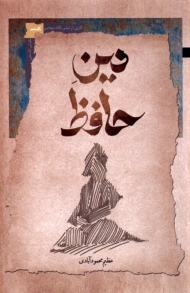 دینِ
حافظ
عظیم محمودآبادی